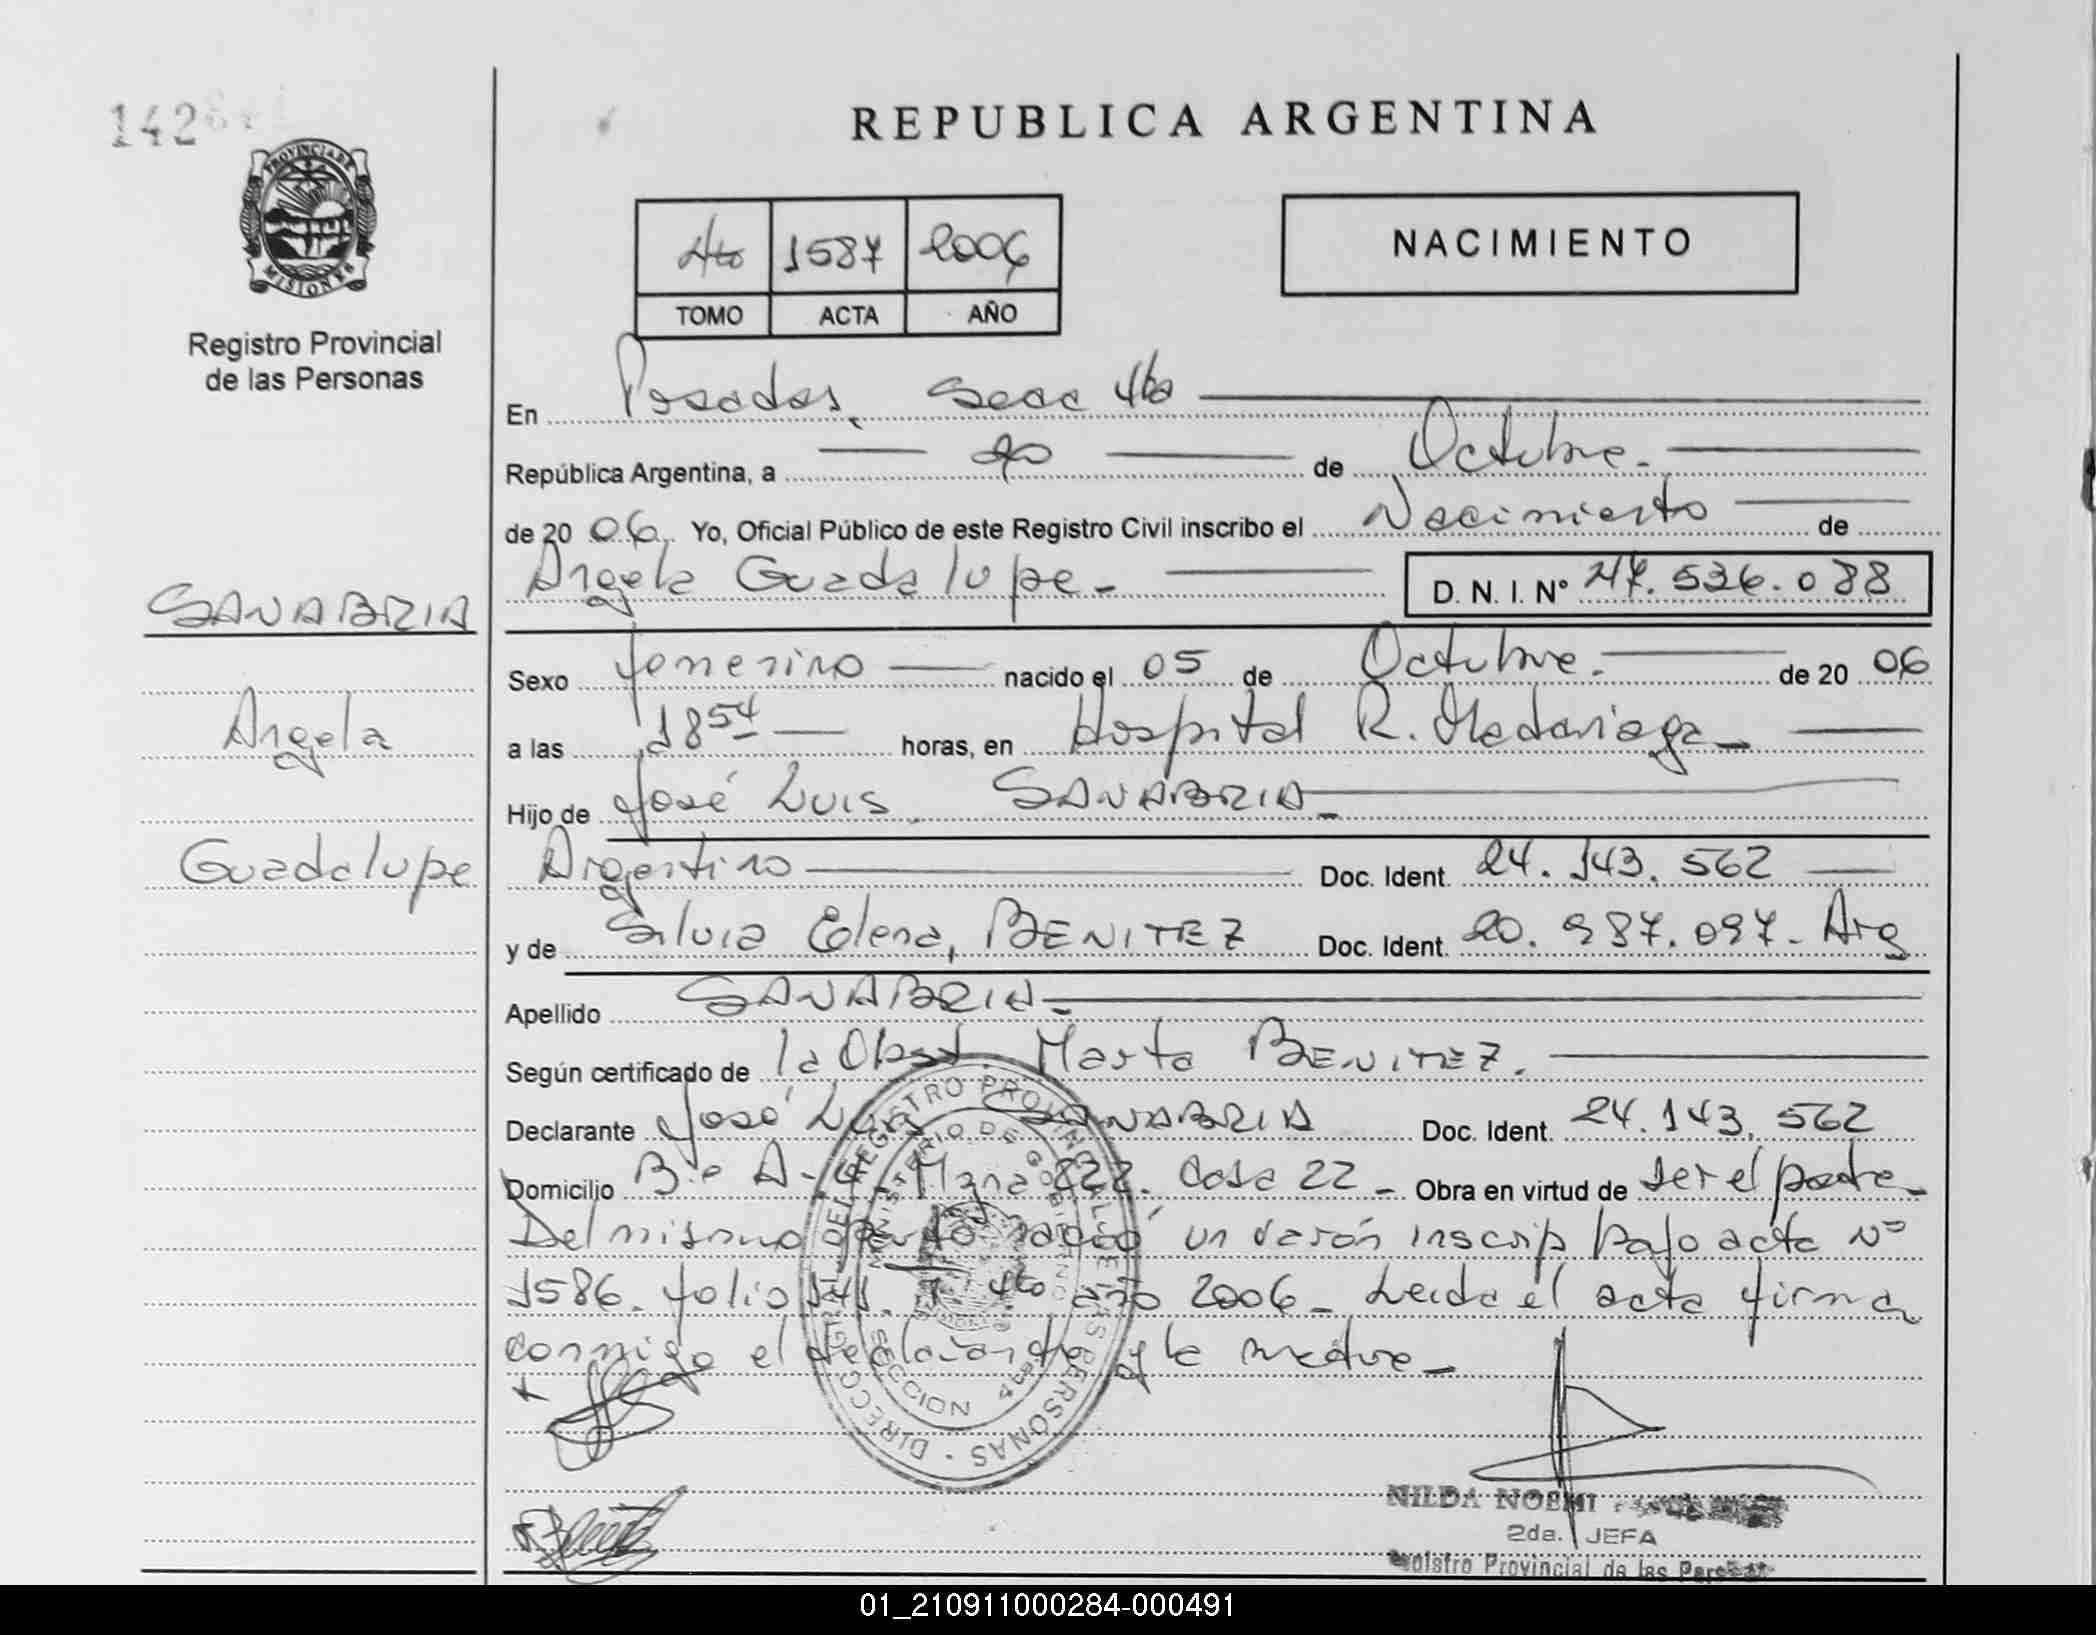 142
REPUBLICA ARGENTINA
PROVINCIA DE MISIONES
Registro Provincial
de las Personas
4to 1587 2006
TOMO ACTA AÑO
NACIMIENTO
En Posadas, Secc 4ta
República Argentina, a de Octubre.
de 20 06. Yo, Oficial Público de este Registro Civil inscribo el Nacimiento de
Angela Guadalupe.- D. N. I. Nº 47.536.088
SANABRIA
Angela
Guadalupe
Sexo femenino nacido el 05 de Octubre. de 20 06
a las 18 54 horas, en Hospital R. Madariaga
Hijo de José Luis SANABRIA
Argentino Doc. Ident. 24.143.562
y de Silvia Elena, BENITEZ Doc. Ident. 20.987.097- Arg
Apellido SANABRIA
Según certificado de la Obst Marta BENITEZ.
Declarante José Luis SANABRIA Doc. Ident. 24.143.562
Domicilio Bº A- Casa 22 - Obra en virtud de ser el padre
Del mismo parto nació un varón inscrip bajo acta Nº
1586. folio 141. T. 4to año 2006- Leida el acta firma
conmigo el declarante y la madre-
DIRECC. GRAL. DEL REGISTRO PROVINCIAL DE LAS PERSONAS
MINISTERIO DE GOBIERNO
SECCION 4ta.
NILDA NOEMI
2da. JEFA
Registro Provincial de las Personas
01_210911000284-000491